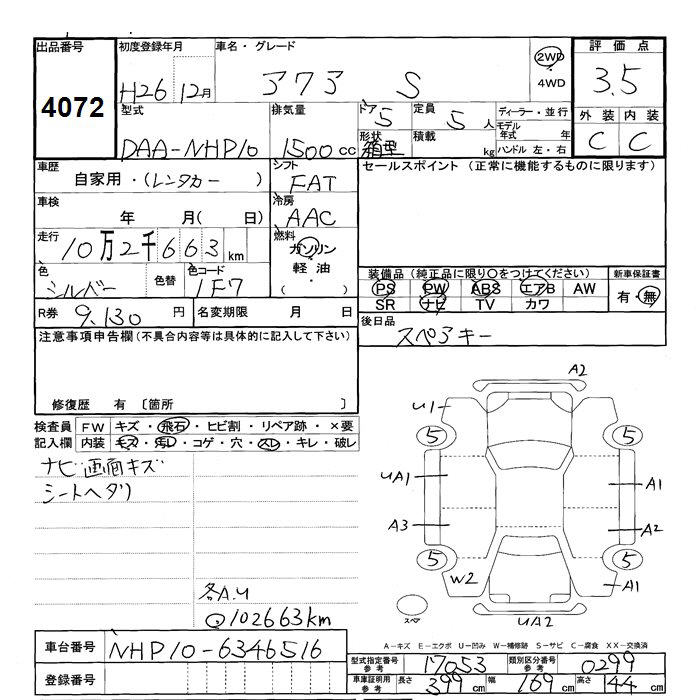 出品番号 初度登録年月 車名・グレード 評価点
4072 H26 12月 アクア S 2WD 3.5
4WD
外装 内装
C C
型式 排気量 ドア 定員 ディーラー・並行
DAA-NHP10 1500cc 5 5人 モデル年式 年
形状 積載 ハンドル 左・右
箱型 kg
車歴 シフト セールスポイント (正常に機能するものに限ります)
自家用・(レンタカー ) FAT
車検 冷房
年 月( 日) AAC
走行 燃料
10万2千663km ガソリン
軽油
( ・ )
色 色替 色コード
シルバー 1F7
装備品 (純正品に限り○をつけてください) 新車保証書
PS PW ABS エアB AW 有・無
SR ナビ TV カワ
R券 9,130円 名変期限 月 日
後日品
スペアキー
注意事項申告欄 (不具合内容等は具体的に記入して下さい)
修復歴 有 〔箇所 〕
検査員 FW キズ・飛石・ヒビ割・リペア跡・×要
記入欄 内装 キズ・汚レ・コゲ・穴・スレ・キレ・破レ
ナビ画面キズ
シートヘタリ
各A.U
102663km
A2
U1
5 5
UA1 A1
A3 A2
5 5
W2 A1
スペア
UA2
A-キズ E-エクボ U-凹み W-補修跡 S-サビ C-腐食 XX-交換済
車台番号 NHP10-6346516
型式指定番号 参考 17053 類別区分番号 参考 0299
登録番号
車庫証明用 参考 長さ 399cm 幅 169cm 高さ 144cm